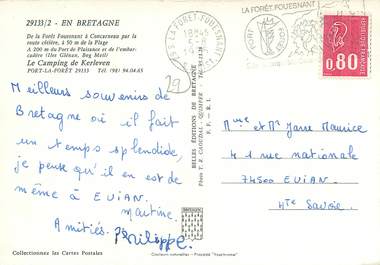 29133/2 - EN BRETAGNE
De la Forêt Fouesnant à Concarneau par la
route côtière, à 50 m de la Plage
A 200 m du Port de Plaisance et de l'embar-
cadère (Iles Glénan, Beg Meil)
Le Camping de Kerleven
PORT-LA-FORÊT 29133 Tél. (98) 94.04.63
29
Meilleurs souvenirs de
Bretagne où il fait
un temps splendide,
je pense qu'il en est de
même à EVIAN.
Martine.
Amitiés. Philippe.
Collectionnez les Cartes Postales
BELLES ÉDITIONS DE BRETAGNE
F. F. - R. I.
LA FORÊT-FOUESNANT
18H45
PORT
FORET
0,80
Mme et Mr Maurice
41 rue nationale
74500 EVIAN.
Hte Savoie.
Couleurs naturelles